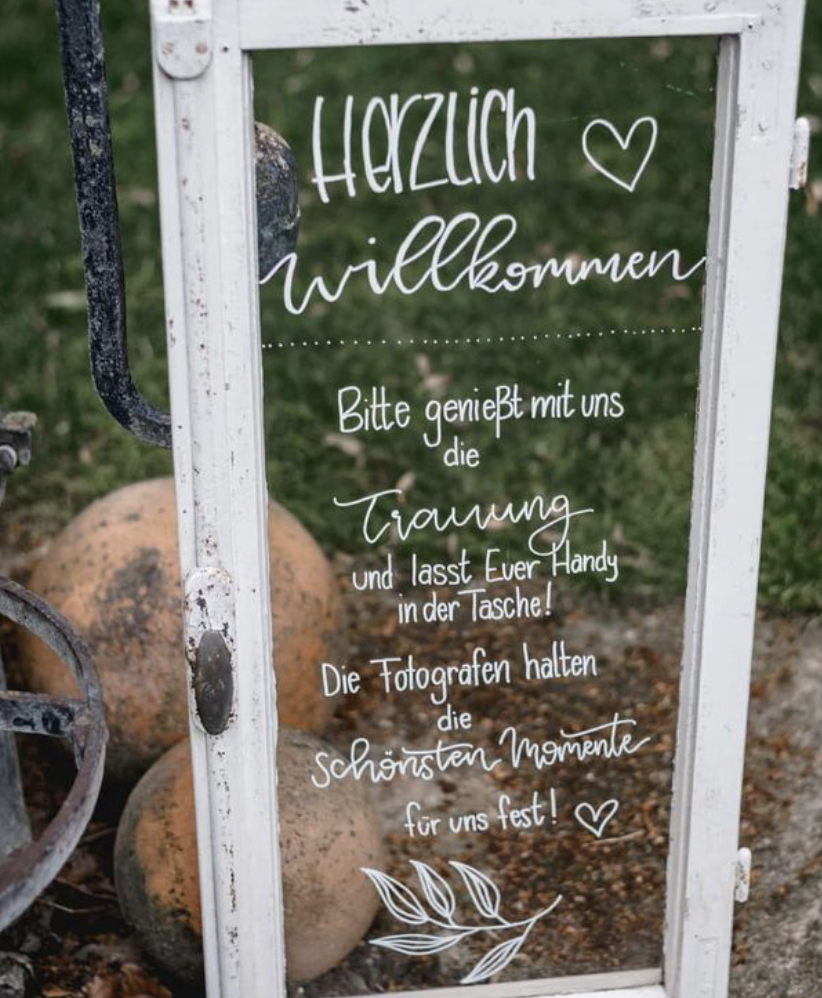 Herzlich
willkommen
Bitte genießt mit uns
die
Trauung
und lasst Euer Handy
in der Tasche!
Die Fotografen halten
die
schönsten Momente
für uns fest!